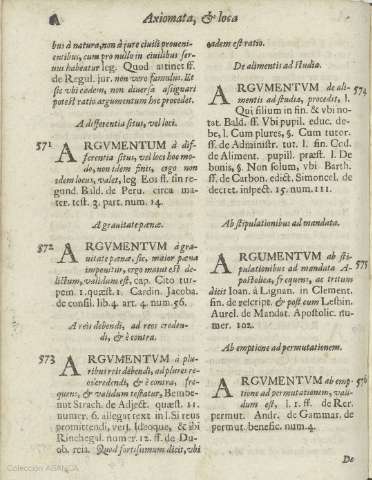 Axiomata, & loca
bus à natura, non à jure ciuili proueni-
entibus, cum pro nullo in ciuilibus ser-
uus habeatur leg. Quod attinet ff.
de Regul. jur. non vero famulus. Et
sic vbi eadem, non diuersa assignari
potest ratio argumentum hoc procedet.
A differentia situs, vel loci.
571 ARGVMENTVM à dif-
ferentia situs, vel loci hoc mo-
do, non idem finis, ergo non
idem locus, valet, leg. Eos ff. fin re-
gund. Bald. de Peru. circa ma-
ter. test. 3. part. num. 14.
A grauitate pænæ.
572 ARGVMENTVM à gra-
uitate pænæ, sic, maior pæna
imponitur, ergo maius est de-
lictum, validum est, cap. Cito tur-
pem. 1. quæst. 1. Cardin. Jacoba.
de consil. lib. 4. art. 4. num. 56.
A reis debendi, ad reos creden-
di, & è contra.
573 ARGVMENTVM à plu-
ribus reis debendi, ad plures re-
os credendi, & è contra, fre-
quens, & validum testatur, Bembe-
nut Strach. de Adject. quæst. 11.
numer. 6. allegat text in l. Si reus
promittendi, verf. Ideoque, & ibi
Rinchegul. numer. 12. ff. de Du-
ob. reis. Quod fortissimum dicit, vbi
eadem est ratio.
De alimentis ad studia.
ARGVMENTVM de ali- 574
mentis ad studia, procedit, l.
Qui filium in fin. & vbi no-
tat. Bald. ff. Vbi pupil. educ. de-
be, l. Cum plures, §. Cum tutor.
ff. de Administr. tut. l. fin. Ced.
de Aliment. pupill. præst. l. De
bonis, §. Non solum, vbi Barth.
ff. de Carbon. edict. Simoncel. de
decret. inspect. 15. num. 111.
Ab stipulationibus ad mandata.
ARGUMENTVM ab sti- 575
pulationibus ad mandata A-
postolica, frequens, ac tritum
dicit Ioan. à Lignan. in Clement.
fin. de rescript. & post eum Lesbin.
Aurel. de Mandat. Apostolic. nu-
mer. 102.
Ab emptione ad permutationem.
ARGVMENTVM ab emp- 576
tione ad permutationem, vali-
dum est, l. 1. ff. de Rer.
permut. Andr. de Gammar. de
permut. benefic. num. 4.
De
Colección ABANCA